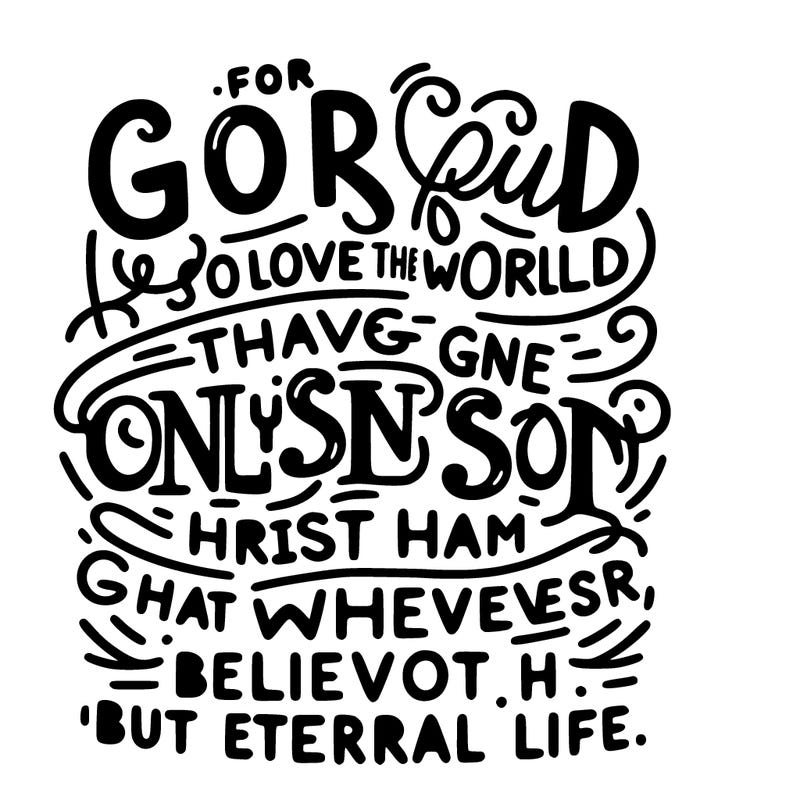 .FOR
GOR GuD
SO LOVE THE WORLLD
THAVE GNE
ONLYSN SON
HRIST HAM
GHAT WHEVEVESR,
BELIEVOT.H.
'BUT ETERRAL LIFE.